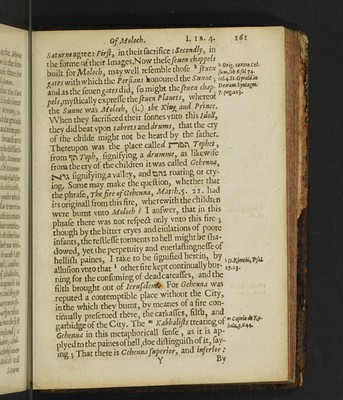 Of Moloch. LIB. 4. 161
Saturne agree: First, in their sacrifice: Secondly, in
the forme of their Images. Now these seuen chappels
built for Moloch, may well resemble those k seuen
gates with which the Persians honoured the Sunne,
and as the seuen gates did, so might the seuen chap-
pels, mystically expresse the seuen Planets, whereof
the Sunne was Moloch, (i.) the King and Prince.
When they sacrificed their sonnes vnto this Idoll,
they did beat vpon tabrets and drums, that the cry
of the childe might not be heard by the father.
Thereupon was the place called תפת Tophet,
from תף Toph, signifying a drumme, as likewise
from the cry of the children it was called Gehenna,
גיא signifying a valley, and נהם roaring or cry-
ing. Some may make the question, whether that
the phrase, The fire of Gehenna, Matth. 5. 22. had
its originall from this fire, wherewith the children
were burnt vnto Moloch? I answer, that in this
phrase there was not respect only vnto this fire;
though by the bitter cryes and eiulations of poore
infants, the restlesse torments to hell might be sha-
dowed, yet the perpetuity and euerlastingnesse of
hellish paines, I take to be signified herein, by
allusion vnto that l other fire kept continually bur-
ning for the consuming of dead carcasses, and the
filth brought out of Ierusalem. For Gehenna was
reputed a contemptible place without the City,
in the which they burnt, by meanes of a fire con-
tinually preserued there, the carkasses, filth, and
garbidge of the City. The m Kabbalists treating of
Gehenna in this metaphoricall sense, as it is ap-
plyed to the paines of hell, doe distinguish of it, say-
ing; That there is Gehenna superior, and inferior:
Y By
k Orig. contra Cel-
sum, lib. 6. fol. 74.
Deorum Syntagm.
7. pag. 223.
l D. Kimchi, Psal.
27. 13.
m Capnio de Ka-
bala, p. 644.